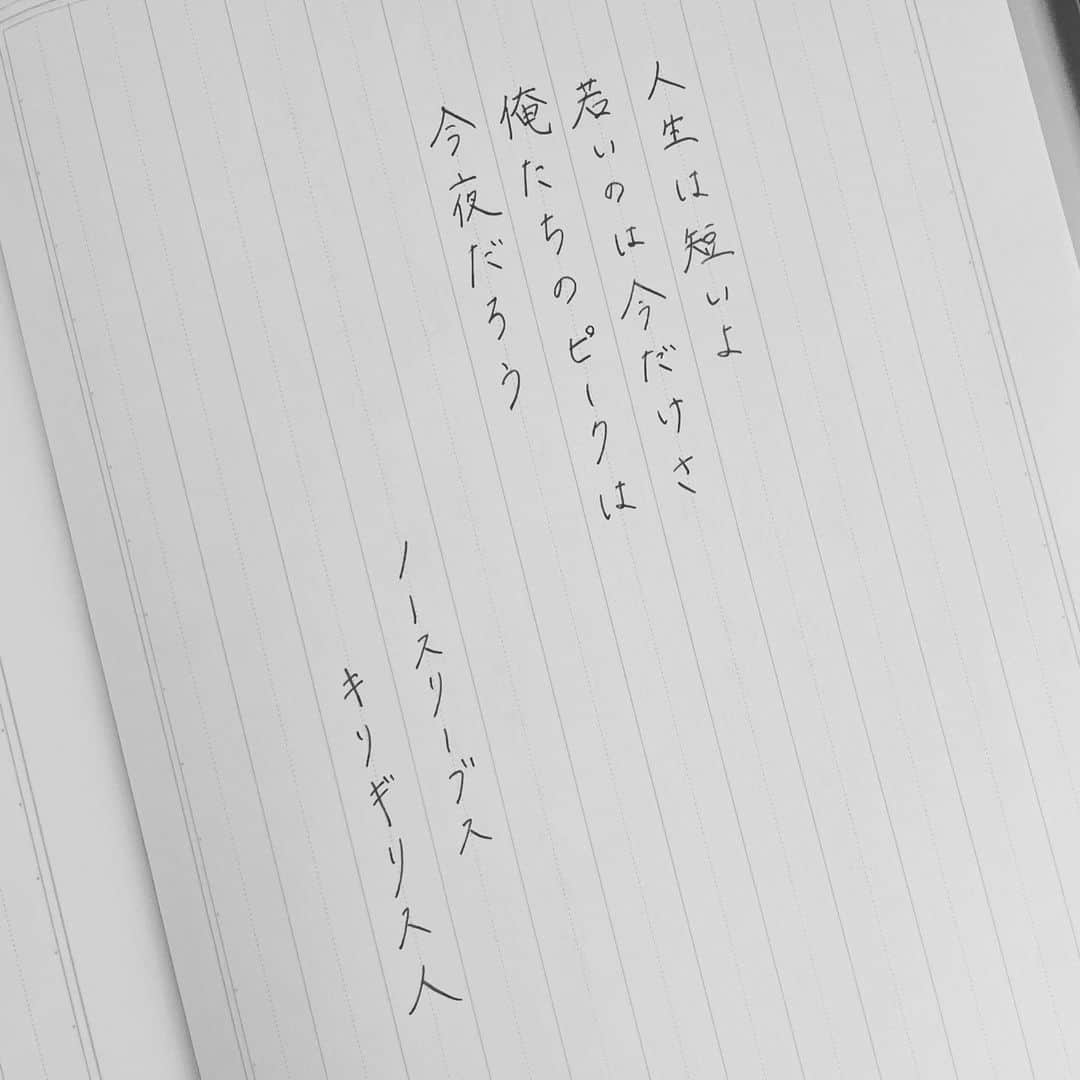 人生は短いよ
若いのは今だけさ
俺たちのピークは
今夜だろう
ノースリーブス
キリギリス人